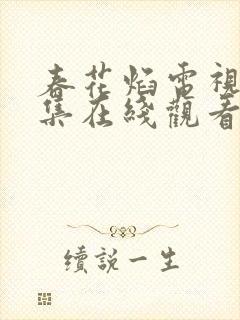 春花焰電視
集在綫觀看
續說一生